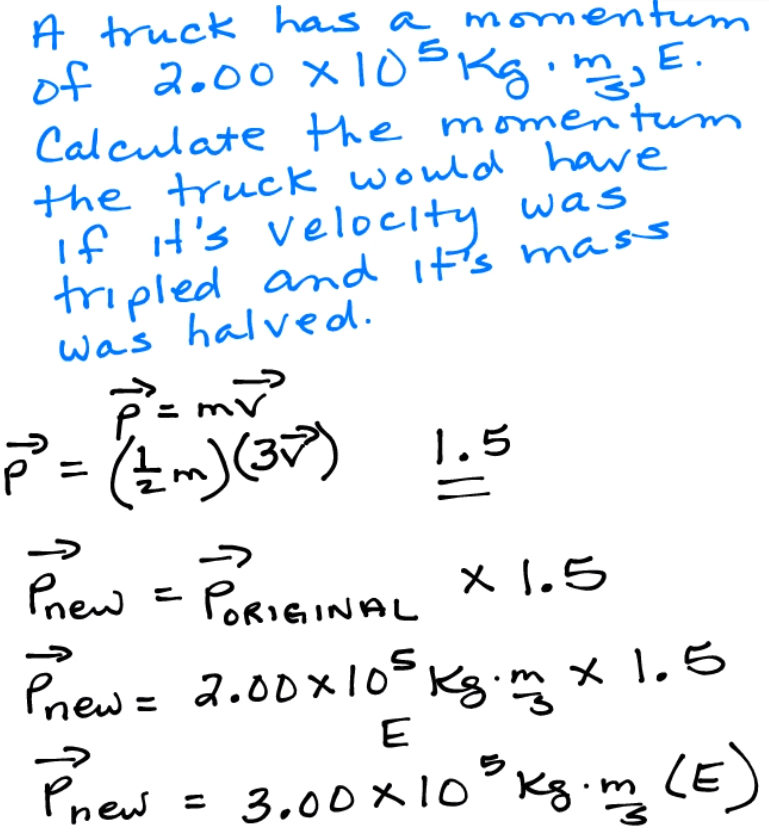 A truck has a momentum
of 2.00 × 10⁵ Kg · m/s, E.
Calculate the momentum
the truck would have
if it's velocity was
tripled and it's mass
was halved.
p⃗ = mv⃗
p⃗ = (1/2 m)(3v⃗) 1.5
P⃗new = P⃗ORIGINAL × 1.5
P⃗new = 2.00 × 10⁵ Kg · m/s × 1.5
E
P⃗new = 3.00 × 10⁵ Kg · m/s (E)